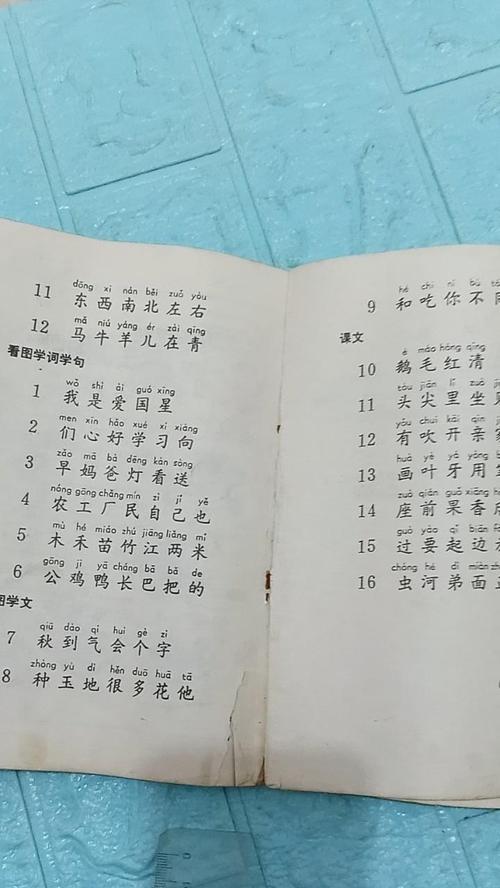 dōng xi nán běi zuǒ yòu
11 东西南北左右
mǎ niú yáng ér zài qīng
12 马牛羊儿在青
看图学词学句
wǒ shì ài guó xīng
1 我是爱国星
men xīn hǎo xué xí xiàng
2 们心好学习向
zǎo mā bà dēng kàn sòng
3 早妈爸灯看送
nóng gōng chǎng mín zì jǐ yě
4 农工厂民自己也
mù hé miáo zhú jiāng liǎng mǐ
5 木禾苗竹江两米
gōng jī yā cháng bā bǎ de
6 公鸡鸭长巴把的
图学文
qiū dào qì huì gè zì
7 秋到气会个字
zhòng yù dì hěn duō huā tā
8 种玉地很多花他
hé chī nǐ bù
9 和吃你不
课文
é máo hóng qīng
10 鹅毛红清
tóu jiān lǐ zuò
11 头尖里坐
yǒu chuī kāi qīn
12 有吹开亲
huà yè yá yòng
13 画叶牙用
zuò qián guǒ xiāng
14 座前果香
guò yào qǐ biān
15 过要起边
chóng hé dì miàn
16 虫河弟面